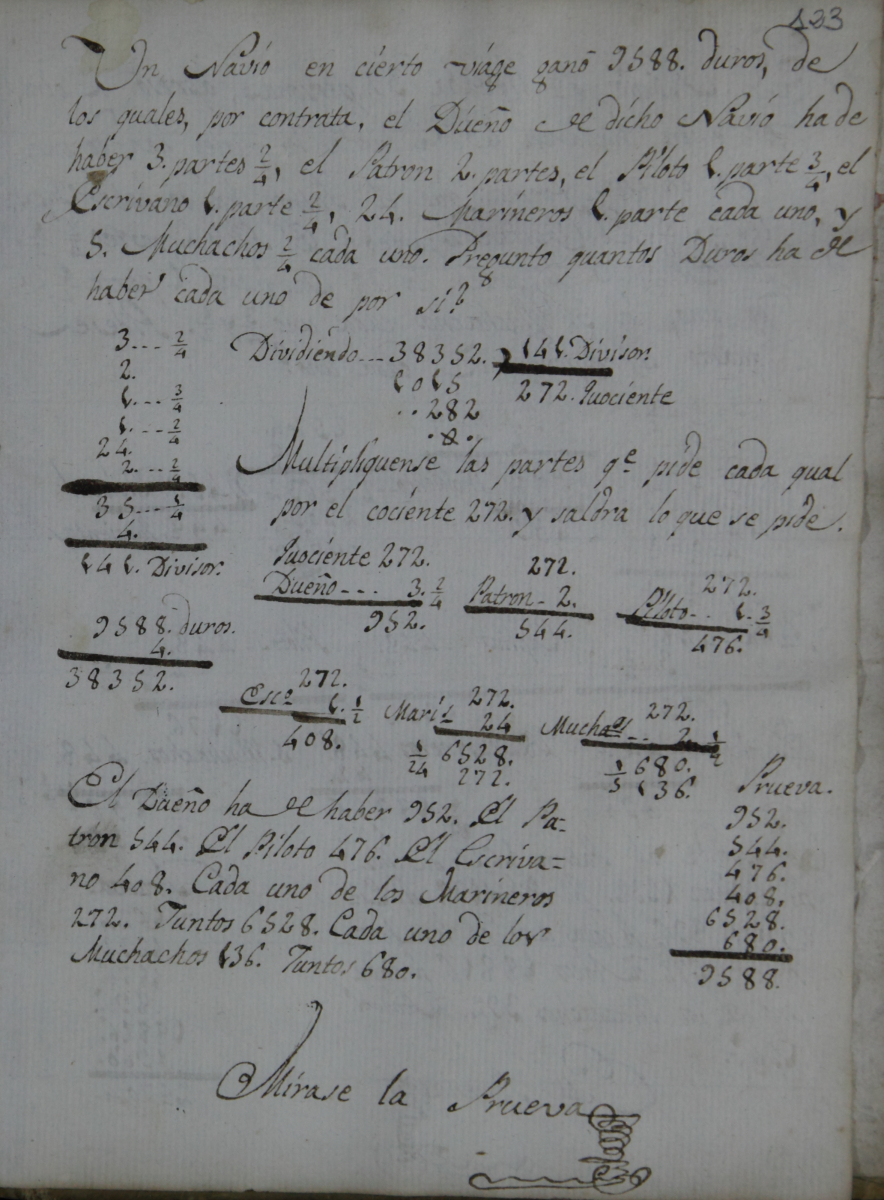 123
Un Navió en cierto viáge ganó 9588. duros, de
los quales, por contrata, el Dueño de dicho Navió ha de
haber 3. partes 2/4, el Patron 2. partes, el Piloto 1. parte 3/4, el
Escrivano 1. parte 2/4, 24. Marineros 1. parte cada uno, y
5. Muchachos 2/4 cada uno. Pregunto quantos Duros ha de
haber cada uno de por si?
3... 2/4
2.
1... 3/4
1... 2/4
24.
2... 2/4
35... 1/4
4.
141. Divisor.
9588. duros.
4.
38352.
Dividiendo... 38352. 141. Divisor.
1015 272. Quociente
..282
.0.
Multipliquense las partes qe. pide cada qual
por el cociente 272. y saldra lo que se pide.
Quociente 272.
Dueño... 3. 2/4
952.
272.
Patron - 2.
544.
272.
Piloto.. 1. 3/4
476.
272.
Esco. 1. 1/2
408.
272.
Maris 24
6528.
1/24 272.
272.
Muchas... 2. 1/2
680.
1/5 136.
El Dueño ha de haber 952. El Pa=
tron 544. El Piloto 476. El Escriva=
no 408. Cada uno de los Marineros
272. Juntos 6528. Cada uno de los
Muchachos 136. Juntos 680.
Prueva.
952.
544.
476.
408.
6528.
680.
9588.
Mirase la Prueva